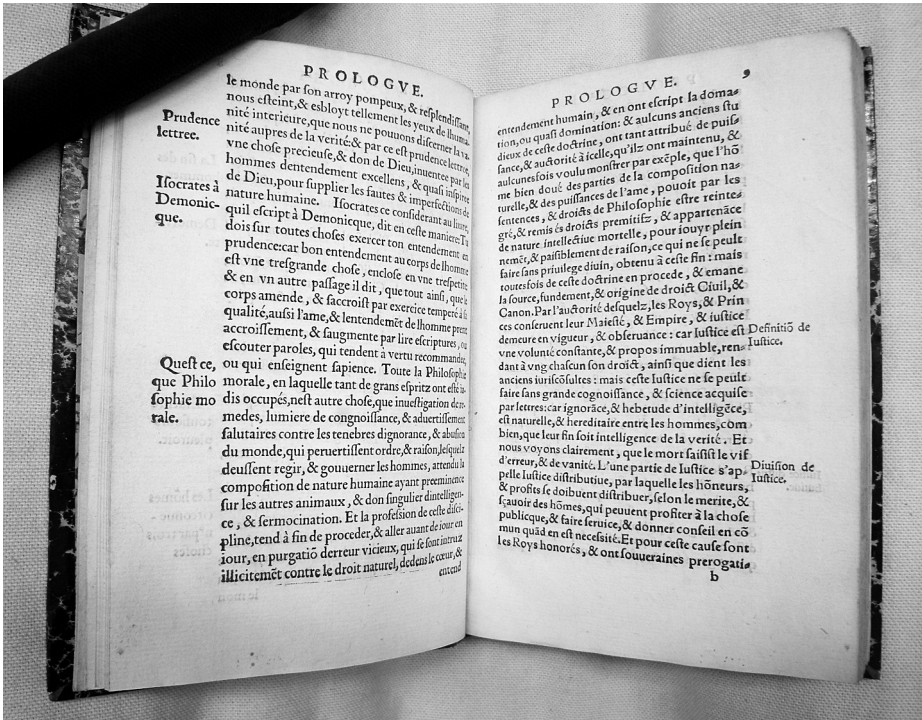 PROLOGVE.
le monde par son arroy pompeux, & resplendissant,
nous esteint, & esbloyt tellement les yeux de lhuma-
nité interieure, que nous ne pouuons discerner la va-
nité aupres de la verité: & par ce est prudence lettree,
vne chose precieuse, & don de Dieu, inuentee par les
hommes dentendement excellens, & quasi inspirée
de Dieu, pour supplier les fautes & imperfections de
nature humaine. Isocrates ce considerant au liure,
quil escript à Demonicque, dit en ceste maniere: Tu
dois sur toutes choses exercer ton entendement en
prudence: car bon entendement au corps de lhomme
est vne tresgrande chose, enclose en vne trespetite
& en vn autre passage il dit, que tout ainsi, que le
corps amende, & saccroist par exercice temperé à sa
qualité, aussi l'ame, & lentendemēt de lhomme prent
accroissement, & saugmente par lire escriptures, ou
escouter paroles, qui tendent à vertu recommandée,
ou qui enseignent sapience. Toute la Philosophie
morale, en laquelle tant de grans espritz ont esté ia-
dis occupés, nest autre chose, que inuestigation de re-
medes, lumiere de congnoissance, & aduertissement
salutaires contre les tenebres dignorance, & abusion
du monde, qui peruertissent ordre, & raison, lesquelz
deussent regir, & gouuerner les hommes, attendu la
composition de nature humaine ayant preeminence
sur les autres animaux, & don singulier dintelligen-
ce, & sermocination. Et la profession de ceste disci-
pline, tend à fin de proceder, & aller auant de iour en
iour, en purgatiō derreur vicieux, qui se sont intruz
illicitemēt contre le droit naturel, dedens le cœur, &
entend
Prudence
lettree.
Isocrates à
Demonic-
que.
Quest ce,
que Philo
sophie mo
rale.
PROLOGVE. 9
entendement humain, & en ont escript la doma-
tion, ou quasi domination: & aulcuns anciens stu
dieux de ceste doctrine, ont tant attribué de puis-
sance, & auctorité à icelle, qu'ilz ont maintenu, &
aulcunesfois voulu monstrer par exēple, que l'hō
me bien doué des parties de la composition na-
turelle, & des puissances de l'ame, pouoit par les
sentences, & droicts de Philosophie estre reinte-
gré, & remis és droicts premitifz, & appartenāce
de nature intellectiue mortelle, pour iouyr plein
nemēt, & paisiblement de raison, ce qui ne se peult
faire sans priuilege diuin, obtenu à ceste fin: mais
toutesfois de ceste doctrine en procede, & emane
la source, fundement, & origine de droict Ciuil, &
Canon. Par l'auctorité desquelz, les Roys, & Prin
ces conseruent leur Maiesté, & Empire, & iustice
demeure en vigueur, & obseruance: car Iustice est
vne volunté constante, & propos immuable, ren-
dant à vng chascun son droict, ainsi que dient les
anciens iuriscōsultes: mais ceste Iustice ne se peult
faire sans grande cognoissance, & science acquise
par lettres: car ignorāce, & hebetude d'intelligēce,
est naturelle, & hereditaire entre les hommes, com
bien, que leur fin soit intelligence de la verité. Et
nous voyons clairement, que le mort saisist le vif
d'erreur, & de vanité. L'une partie de Iustice s'ap-
pelle Iustice distributiue, par laquelle les hōneurs,
& profits se doibuent distribuer, selon le merite, &
sçauoir des hōmes, qui peuuent profiter à la chose
publicque, & faire seruice, & donner conseil en cō
mun quād en est necessité. Et pour ceste cause sont
les Roys honorés, & ont souueraines prerogati-
b
Definitiō de
Iustice.
Diuision de
Iustice.